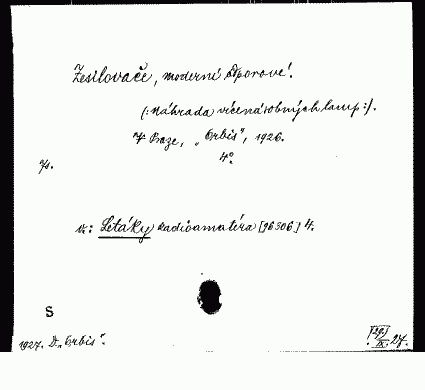 Zesilovače, moderní odporové.
(: Náhrada vícenásobných lamp :).
V Praze, „Orbis", 1926.
4°.
7s.
v: Letáky radioamatéra [96306] 4.
S
1927. D. „Orbis".
[29/IX. 27.